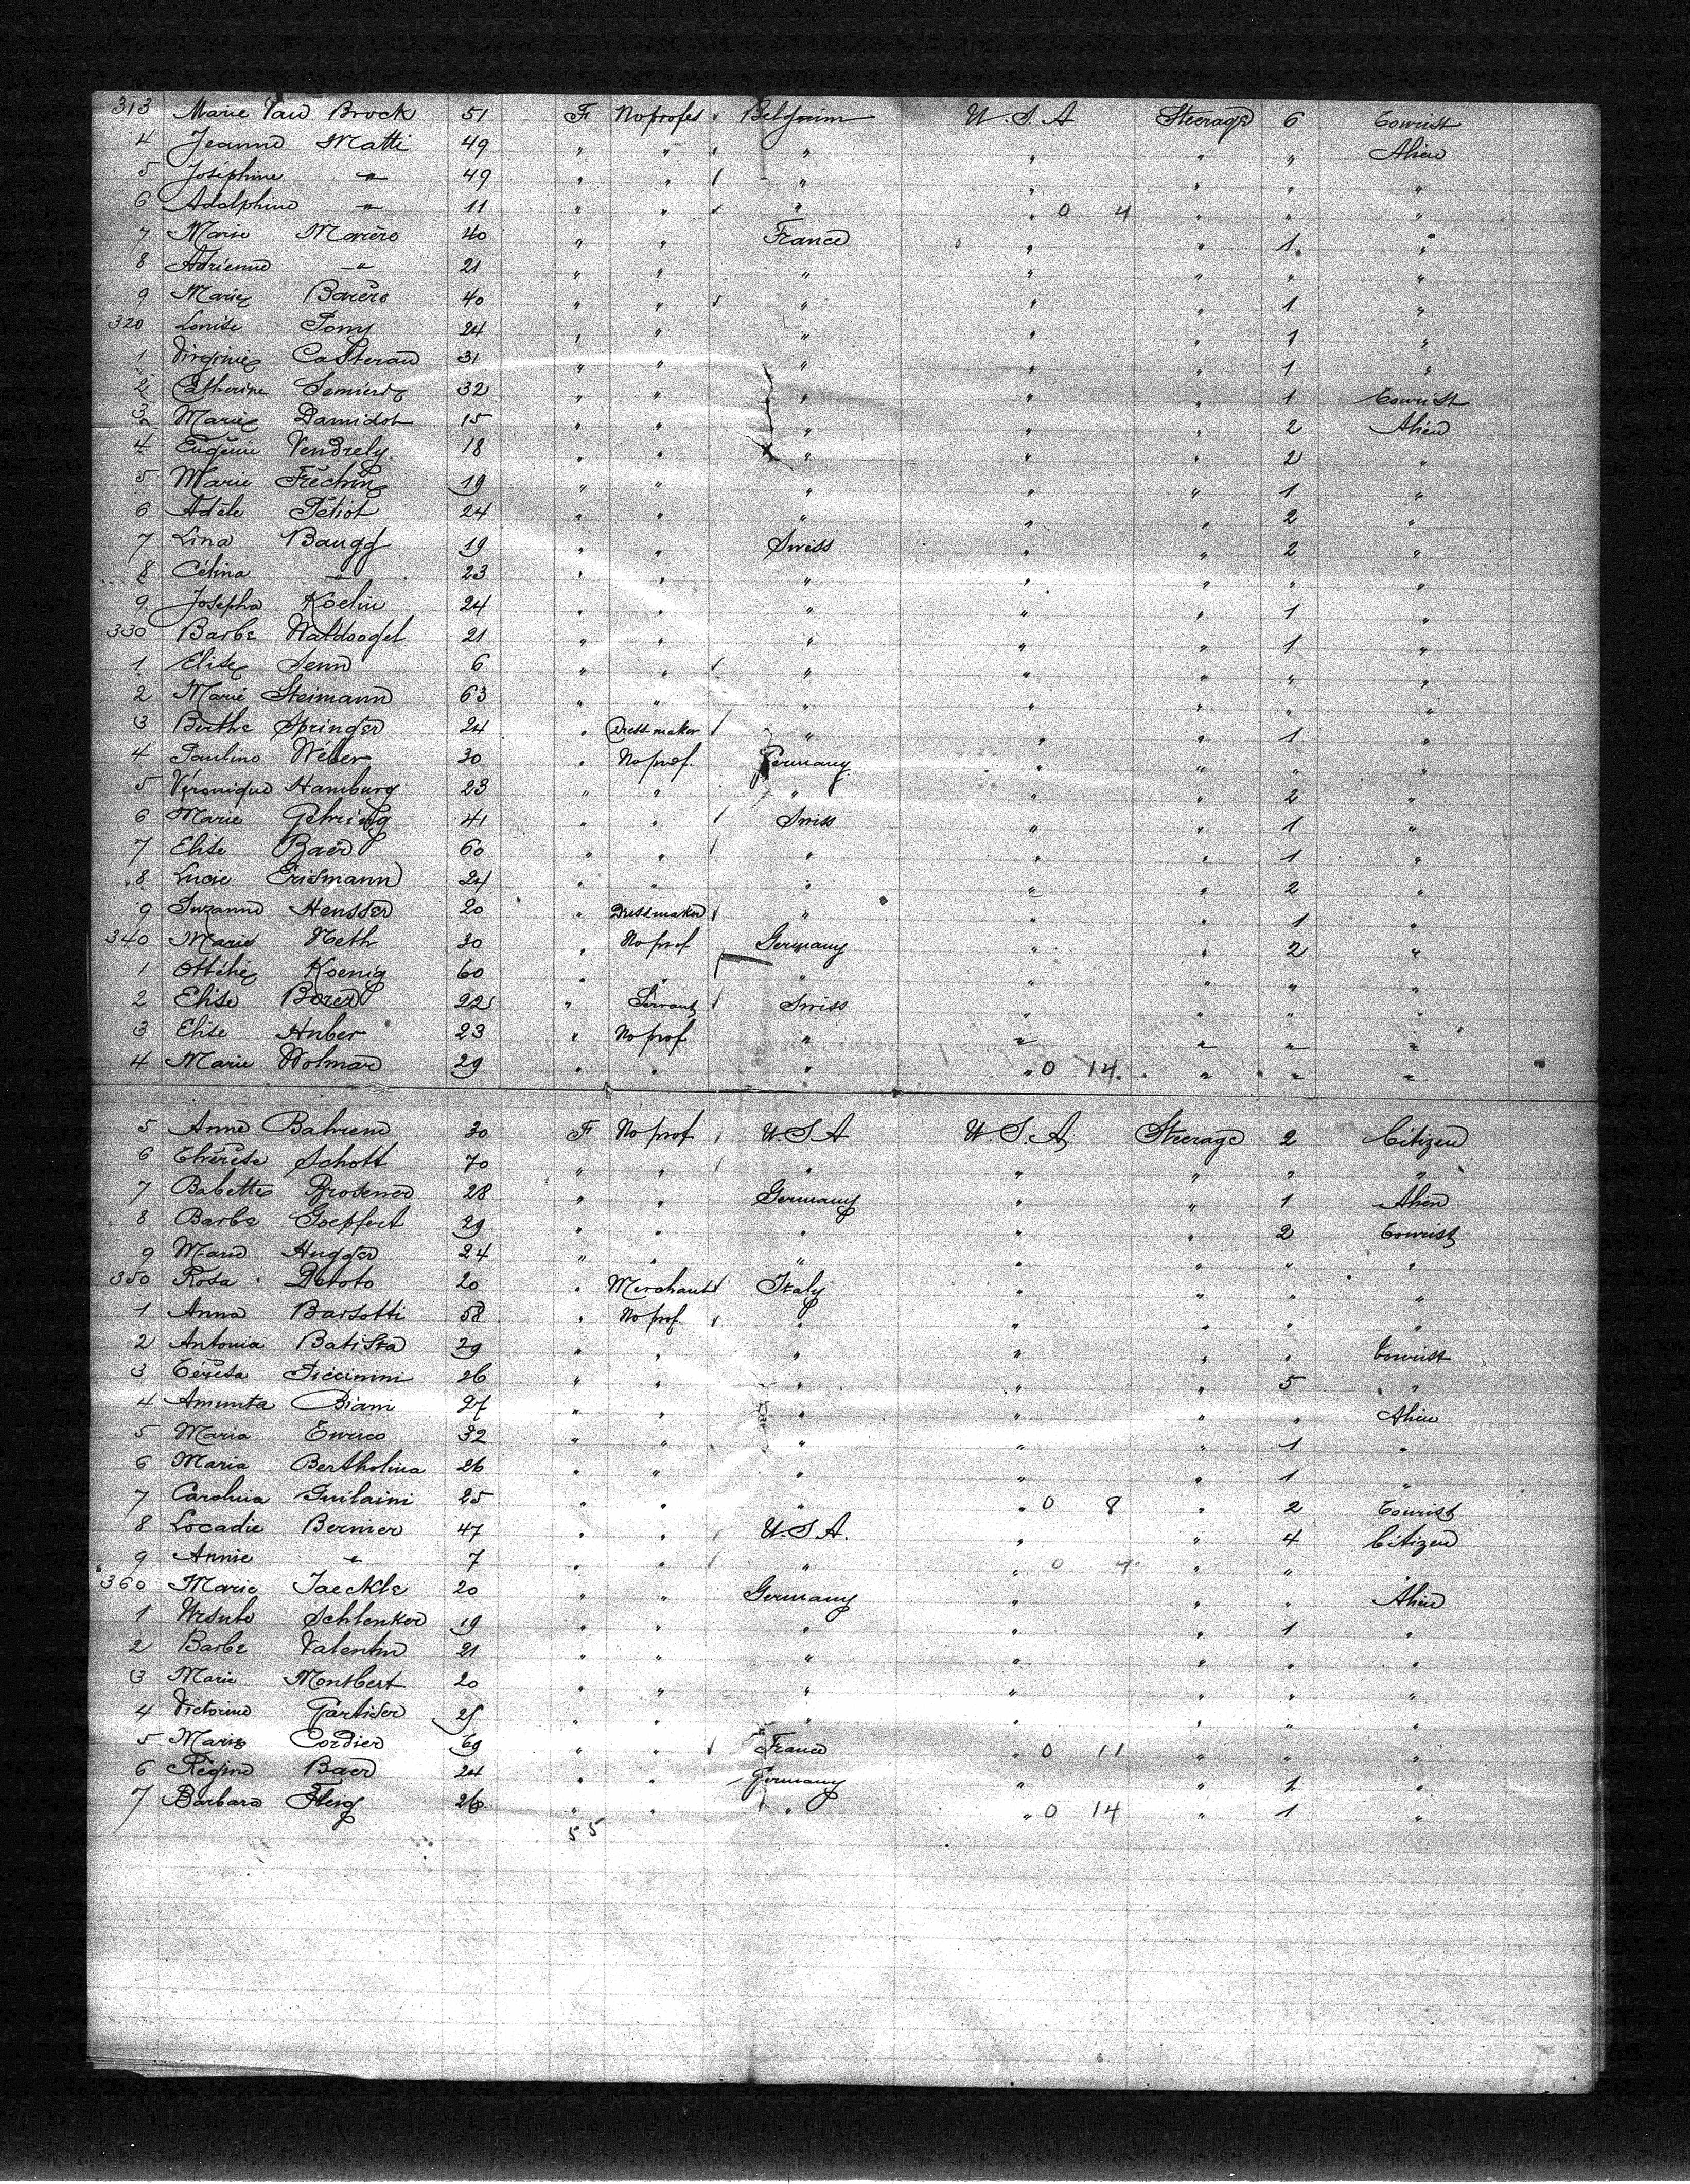 313 Marie Van Brock 51 F No profes Belgium U.S.A Steerage 6 Tourist
4 Jeanne Matti 49 " " " " " " Alien
5 Joséphine " 49 " " " " " " "
6 Adolphine " 11 " " " " 0 4 " " "
7 Marie Marère 40 " " France " " 1 "
8 Adrienne " 21 " " " " " " "
9 Marie Barère 40 " " " " " 1 "
320 Louise Pony 24 " " " " " 1 "
1 Virginie Casteran 31 " " " " " 1 "
2 Catherine 32 " " " " " 1 Tourist
3 Marie Damidot 15 " " " " " 2 Alien
4 Eugénie Vendrely 18 " " " " " 2 "
5 Marie Fréchin 19 " " " " " 1 "
6 Adèle Pétiot 24 " " " " " 2 "
7 Lina Baugg 19 " " Swiss " " 2 "
8 Célina " 23 " " " " " " "
9 Josepha Koelin 24 " " " " " 1 "
330 Barbe Waldvogel 21 " " " " " 1 "
1 Elise Senn 6 " " " " " " "
2 Marie Steimann 63 " " " " " " "
3 Berthe Springer 24 " Dressmaker " " " 1 "
4 Pauline Wéber 30 " No prof. Germany " " " "
5 Véronique Hamburg 23 " " " " " 2 "
6 Marie Gehring 41 " " Swiss " " 1 "
7 Elise Baër 60 " " " " " 1 "
8 Lucie Erismann 24 " " " " " 2 "
9 Suzanne Heusser 20 " Dressmaker " " " 1 "
340 Marie Neth 30 " No prof Germany " " 2 "
1 Ottélie Koenig 60 " " " " " " "
2 Elise Borer 22 " Servant Swiss " " " "
3 Elise Huber 23 " No prof " " " " "
4 Marie Wolmar 29 " " " " 0 14 " " "
5 Anne Bahrend 30 F No prof U.S.A U.S.A Steerage 2 Citizen
6 Thérèse Schott 70 " " " " " " "
7 Babette 28 " " Germany " " 1 Alien
8 Barbe Goepfert 29 " " " " " 2 Tourist
9 Marie Hugger 24 " " " " " " "
350 Rosa Devoto 20 " Merchant Italy " " " "
1 Anna Barsotti 58 " No prof. " " " " "
2 Antonia Batista 29 " " " " " " Tourist
3 Téresa Piccinini 26 " " " " " 5 "
4 Amunta Biani 27 " " " " " " Alien
5 Maria Enrico 32 " " " " " 1 "
6 Maria Bertholina 26 " " " " " 1 "
7 Carolina Guilaini 25 " " " " 0 8 " 2 Tourist
8 Locadie Bernier 47 " " U.S.A. " " 4 Citizen
9 Annie " 7 " " " " 0 " " "
360 Marie Jaeckle 20 " " Germany " " " Alien
1 Ursule Schlenker 19 " " " " " 1 "
2 Barbe Valentin 21 " " " " " " "
3 Marie Montbert 20 " " " " " " "
4 Victorine Gartiser 25 " " " " " " "
5 Marie Cordier 69 " " France " 0 11 " " "
6 Régine Baer 24 " " Germany " " 1 "
7 Barbara Fleig 26 " " " " 0 14 " 1 "
55